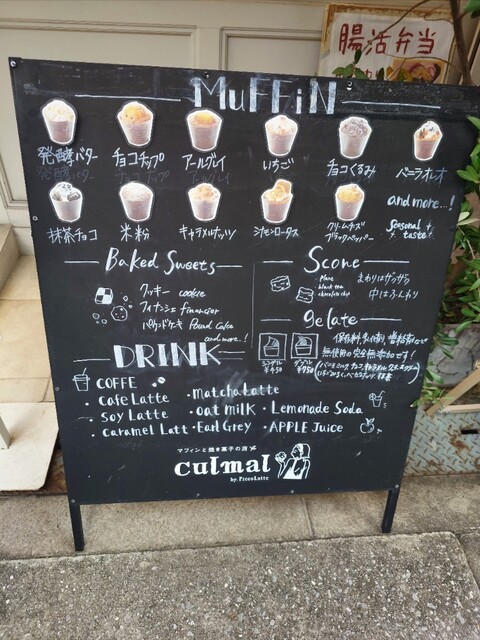 腸活弁当
MuFFiN
発酵バター チョコチップ アールグレイ いちご チョコくるみ バニラオレオ
抹茶チョコ 米粉 キャラメルナッツ シナモンロータス クリームチーズ ブラックペッパー
and more...!
Seasonal taste
Baked Sweets
クッキー cookie
フィナンシェ financier
パウンドケーキ Pound Cake
and more...!
Scone
・Plane
・black tea
・chocolate chip
まわりはサクサク
中はふんわり
gelate
保存料、乳化剤、増粘剤など
無使用の完全無添加です!
シングル ¥450
ダブル ¥750
DRINK
COFFE
・Cafe Latte
・Soy Latte
・Caramel Latt
・Matcha Latte
・oat milk
・Earl Grey
・Lemonade Soda
・APPLE Juice
マフィンと焼き菓子の店
culmal
by. PiccoLatte